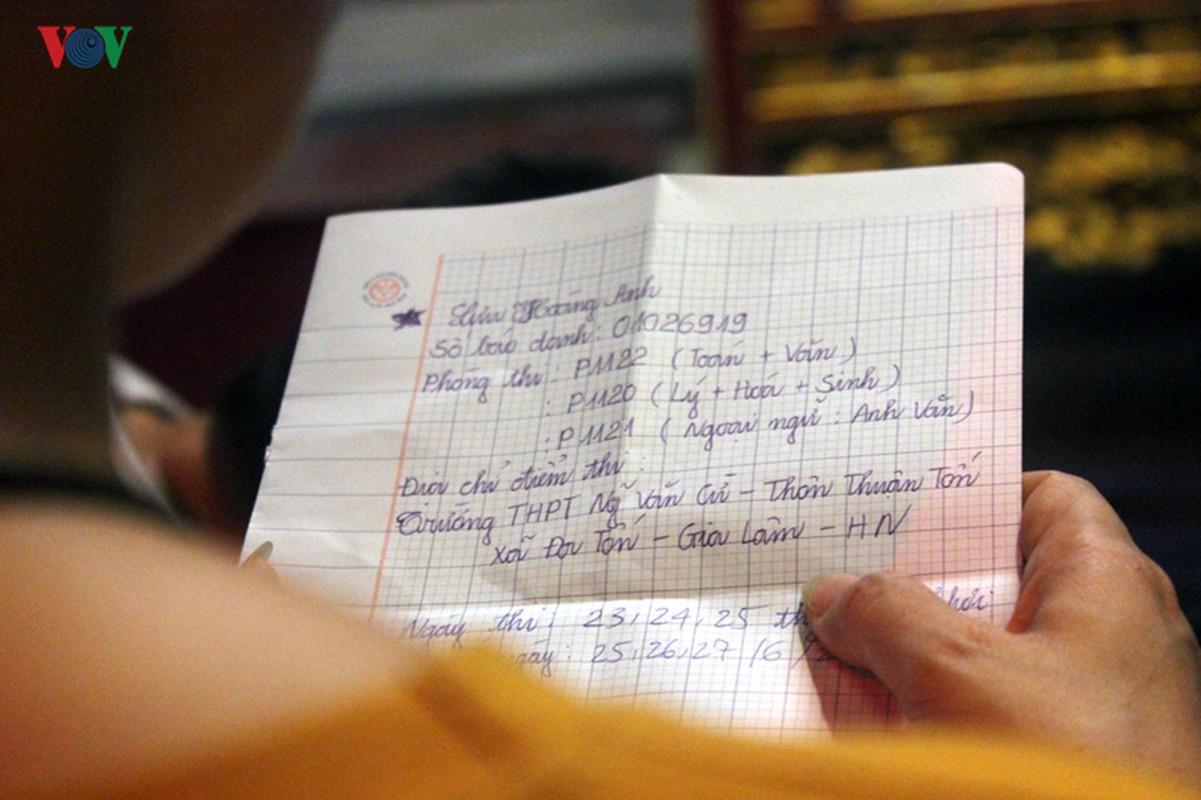 VOV
Lưu Hoàng Anh
Số báo danh: 01026919
Phòng thi: P1122 (Toán + Văn)
: P1120 (Lý + Hoá + Sinh)
: P1121 (Ngoại ngữ: Anh Văn)
Địa chỉ điểm thi:
Trường THPT Ng Văn Cừ - Thôn Thuận Tốn
Xã Đa Tốn - Gia Lâm - HN
Ngày thi: 23, 24, 25 th
: 25, 26, 27 /6 /2